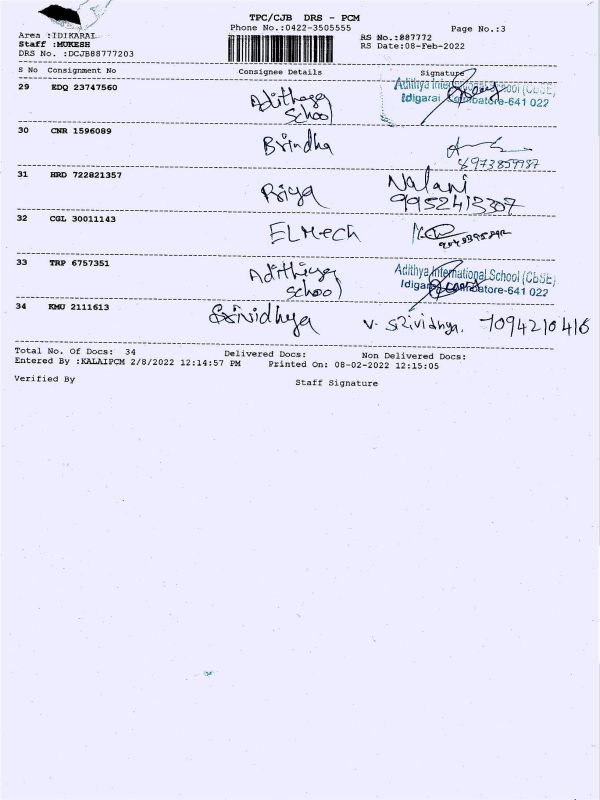 TPC/CJB DRS - PCM
Phone No.:0422-3505555 Page No.:3
Area :IDIKARAI
Staff :MUKESH RS No.:887772
DRS No. :DCJB88777203 RS Date:08-Feb-2022
S No Consignment No Consignee Details Signature
29 EDQ 23747560 Adithaya School
Adithya International School (CBSE)
Idigarai, Coimbatore-641 022
30 CNR 1596089 Brindha
8973859787
31 HRD 722821357 Priya Nalani
9952413307
32 CGL 30011143 ELMech
33 TRP 6757351 Adithiya School
Adithya International School (CBSE)
Idigarai, Coimbatore-641 022
34 KMU 2111613 Srividhya V. Srividhya, 7094210416
Total No. Of Docs: 34 Delivered Docs: Non Delivered Docs:
Entered By :KALAIPCM 2/8/2022 12:14:57 PM Printed On: 08-02-2022 12:15:05
Verified By Staff Signature